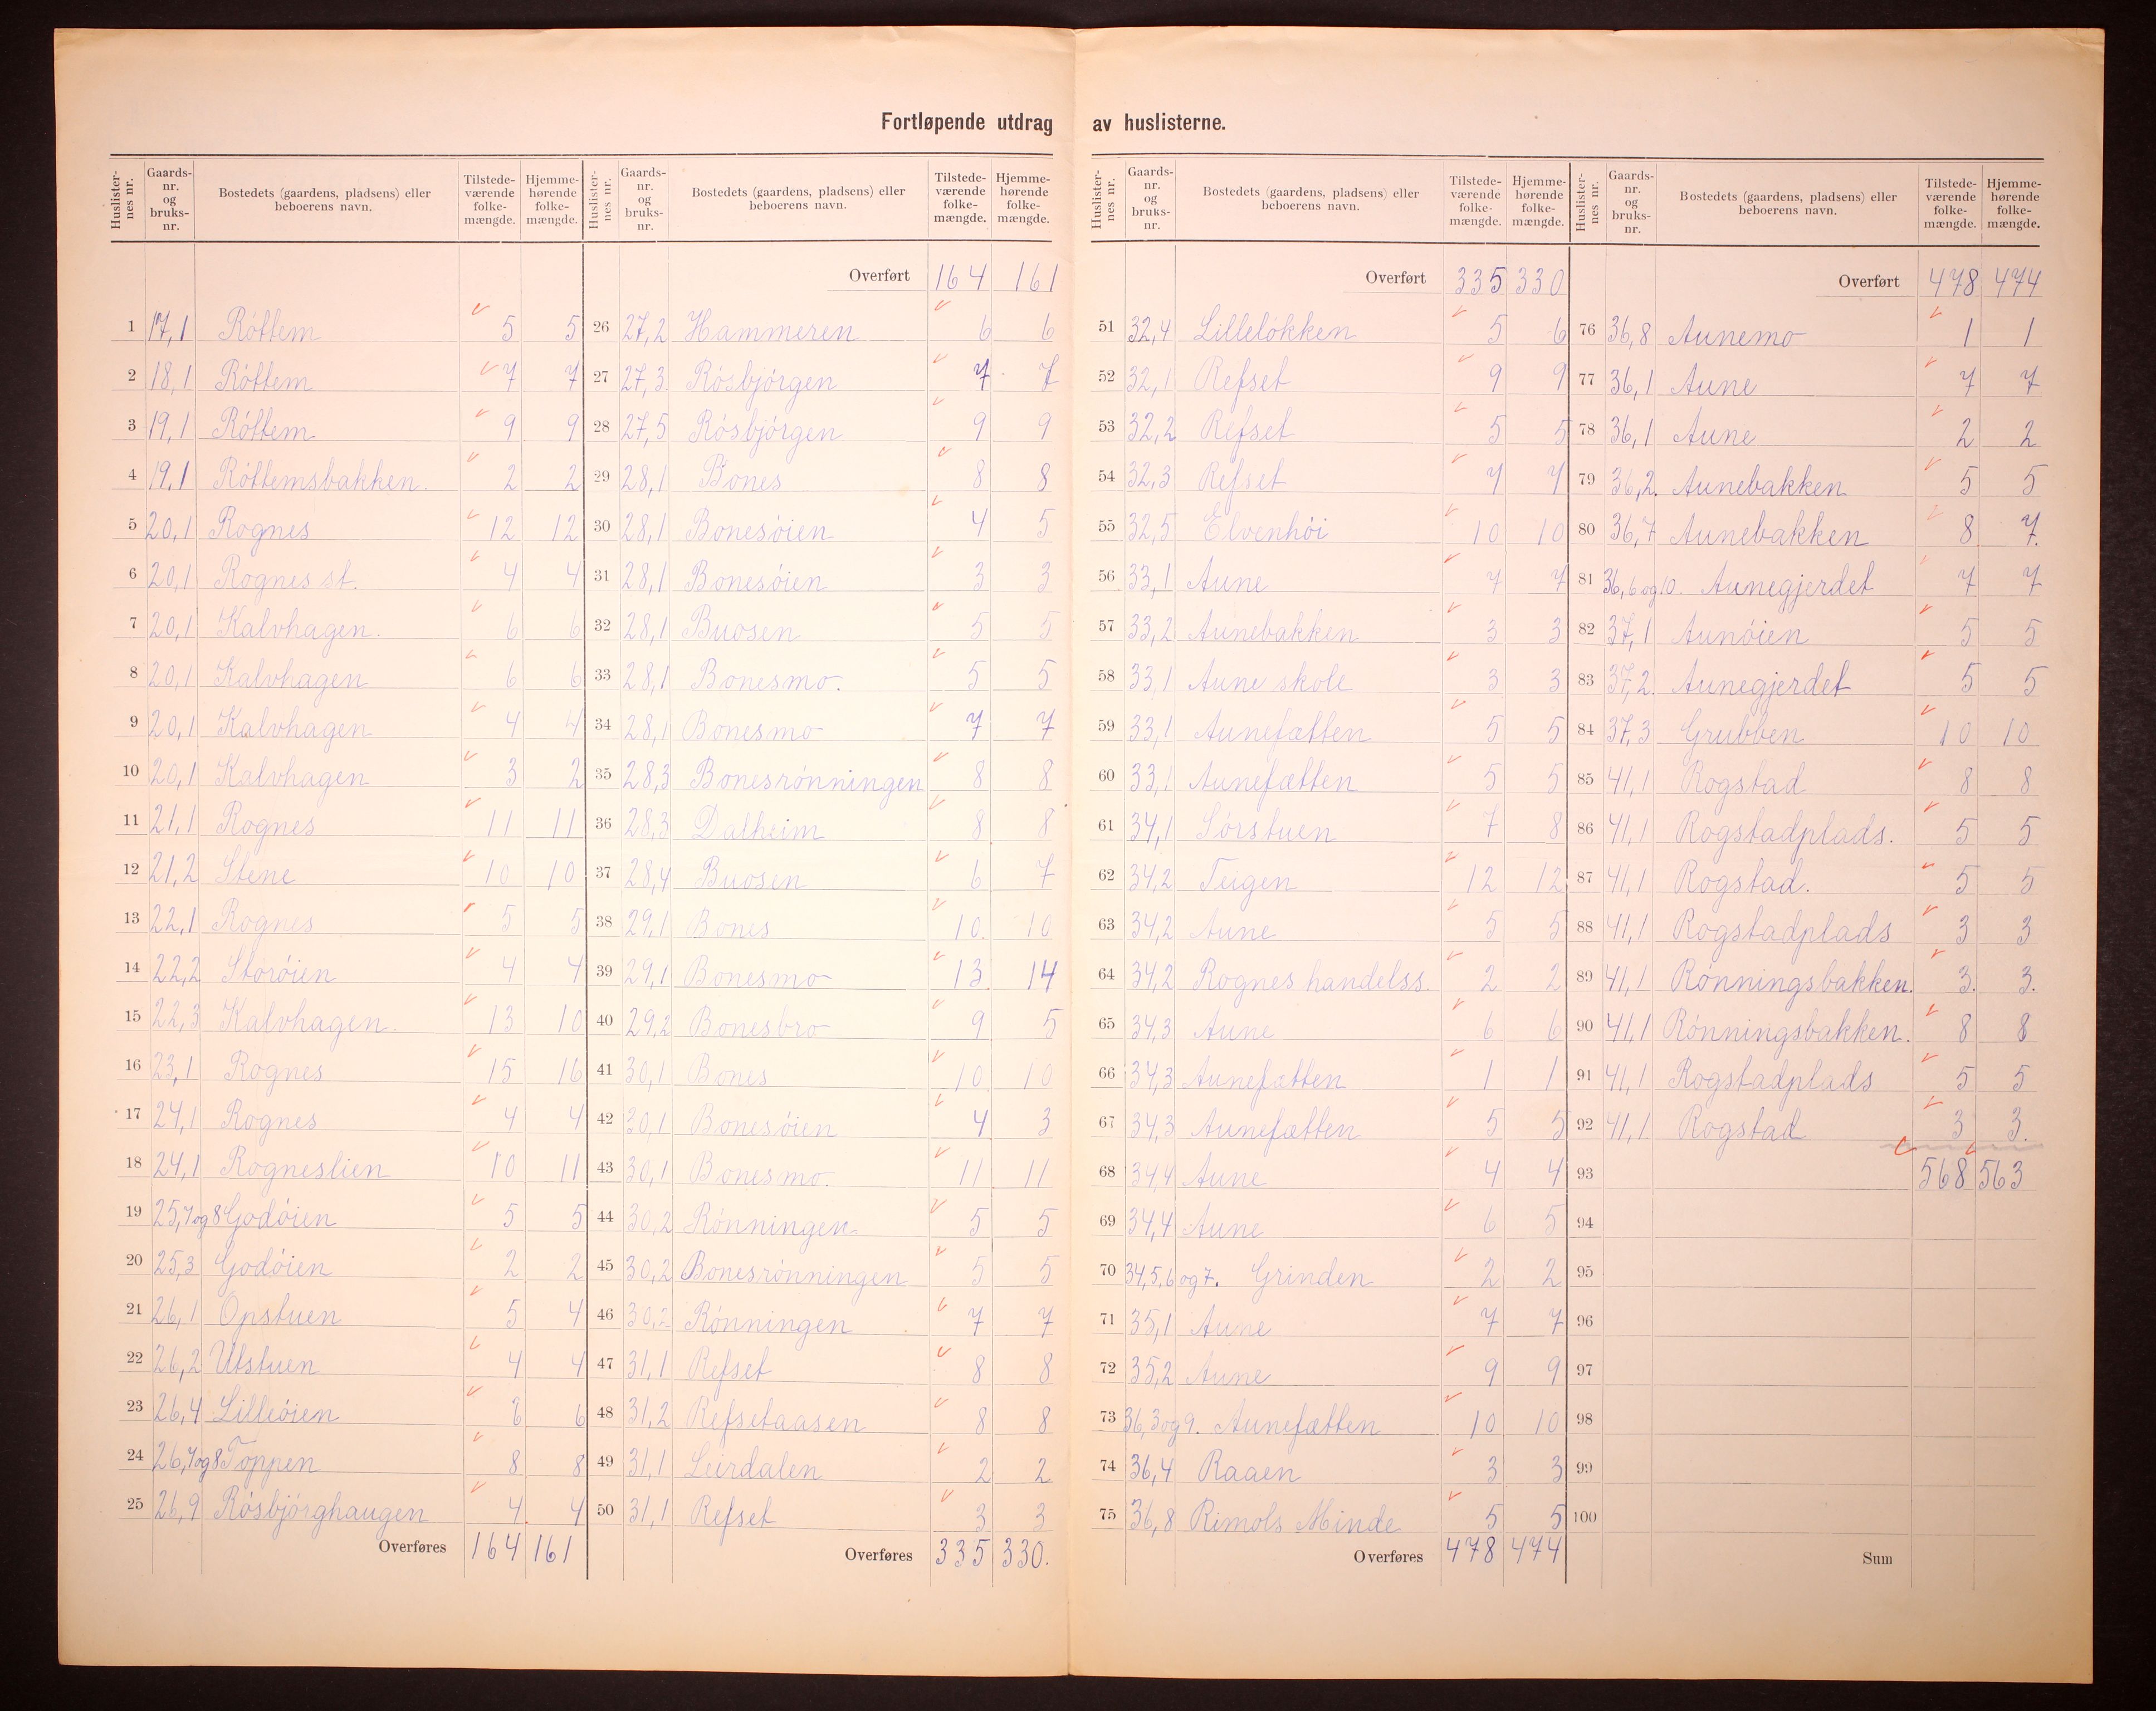 Fortløpende utdrag av huslisterne.
Huslister-nes nr. Gaards-nr. og bruks-nr. Bostedets (gaardens, pladsens) eller beboerens navn. Tilstede-værende folke-mængde. Hjemme-hørende folke-mængde.
1 17,1 Röttem 5 5
2 18,1 Röttem 7 7
3 19,1 Röttem 9 9
4 19,1 Röttemsbakken. 2 2
5 20,1 Rognes 12 12
6 20,1 Rognes st. 4 4
7 20,1 Kalvhagen. 6 6
8 20,1 Kalvhagen 6 6
9 20,1 Kalvhagen 4 4
10 20,1 Kalvhagen 3 2
11 21,1 Rognes 11 11
12 21,2 Stene 10 10
13 22,1 Rognes 5 5
14 22,2 Storöien 4 4
15 22,3 Kalvhagen 13 10
16 23,1 Rognes 15 16
17 24,1 Rognes 4 4
18 24,1 Rogneslien 10 11
19 25,7og8 Godöien 5 5
20 25,3 Godöien 2 2
21 26,1 Opstuen 5 4
22 26,2 Utstuen 4 4
23 26,4 Lilleöien 6
24 26,7og8 Toppen 8 8
25 26,9 Rösbjörghaugen 4 4
Overføres 164 161
Huslister-nes nr. Gaards-nr. og bruks-nr. Bostedets (gaardens, pladsens) eller beboerens navn. Tilstede-værende folke-mængde. Hjemme-hørende folke-mængde.
Overført 164 161
26 27,2 Hammeren 6 6
27 27,3. Rösbjörgen 7 7
28 27,5 Rösbjörgen 9 9
29 28,1 Bones 8 8
30 28,1 Bonesöien 4 5
31 28,1 Bonesöien 3 3
32 28,1 Buosen 5 5
33 28,1 Bonesmo. 5 5
34 28,1 Bonesmo 7 7
35 28,3 Bonesrönningen 8 8
36 28,3 Dalheim 8 8
37 28,4 Buosen 6 7
38 29,1 Bones 10. 10
39 29,1 Bonesmo 13 14
40 29,2 Bonesbro 9 5
41 30,1 Bones 10 10
42 30,1 Bonesöien 4 3
43 30,1 Bonesmo. 11 11
44 30,2 Rönningen 5 5
45 30,2 Bonesrönningen 5 5
46 30,2 Rönningen 7 7
47 31,1 Refset 8 8
48 31,2 Refsetaasen 8 8
49 31,1 Leirdalen 2 2
50 31,1 Refset 3 3
Overføres 335 330.
Huslister-nes nr. Gaards-nr. og bruks-nr. Bostedets (gaardens, pladsens) eller beboerens navn. Tilstede-værende folke-mængde. Hjemme-hørende folke-mængde.
Overført 335 330
51 32,4 Lillelökken 5 6
52 32,1 Refset 9 9
53 32,2 Refset 5 5
54 32,3 Refset 7 7
55 32,5 Elvenhöi 10 10
56 33,1 Aune 7 7
57 33,2 Aunebakken 3 3
58 33,1 Aune skole 3 3
59 33,1 Aunefætten 5 5
60 33,1 Aunefætten 5 5
61 34,1 Sörstuen 7 8
62 34,2 Teigen 12 12
63 34,2 Aune 5 5
64 34,2 Rognes handelss. 2 2
65 34,3 Aune 6 6
66 34,3 Aunefætten 1 1
67 34,3 Aunefætten 5 5
68 34,4 Aune 4 4
69 34,4 Aune 6 5
70 34,5,6 og 7. Grinden 2 2
71 35,1 Aune 7 7
72 35,2 Aune 9 9
73 36,3 og 9. Aunefætten 10 10
74 36,4 Raaen 3 3
75 36,8 Rimols Minde 5 5
Overføres 478 474
Huslister-nes nr. Gaards-nr. og bruks-nr. Bostedets (gaardens, pladsens) eller beboerens navn. Tilstede-værende folke-mængde. Hjemme-hørende folke-mængde.
Overført 478 474
76 36,8 Aunemo 1 1
77 36,1 Aune 7 7
78 36,1 Aune 2 2
79 36,2. Aunebakken 5 5
80 36,7 Aunebakken 8 7.
81 36,6 og 10. Aunegjerdet 7 7
82 37,1 Aunöien 5 5
83 37,2. Aunegjerdet 5 5
84 37,3 Grubben 10 10
85 41,1 Rogstad 8 8
86 41,1 Rogstadplads. 5 5
87 41,1 Rogstad. 5 5
88 41,1 Rogstadplads 3 3
89 41,1 Rönningsbakken. 3. 3.
90 41,1 Rönningsbakken. 8 8
91 41,1 Rogstadplads 5 5
92 41,1. Rogstad 3 3.
93 568 563
94
95
96
97
98
99
100
Sum